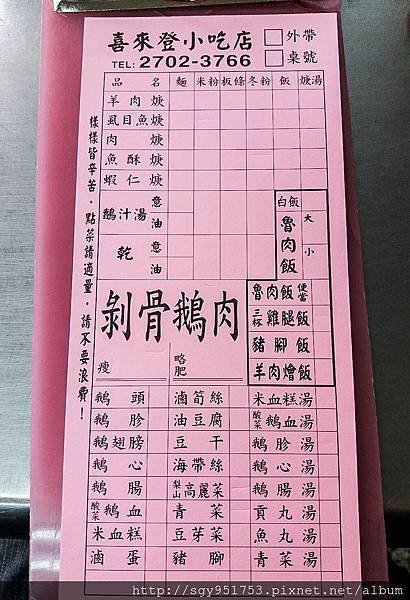 喜來登小吃店 □外帶
TEL: 2702-3766 □桌號
品名 麵 米粉 板條 冬粉 飯 焿湯
羊肉焿
虱目魚焿
肉焿
魚酥焿
蝦仁焿
鵝汁湯 意 油
乾 意 油
白飯
魯肉飯 大 小
剝骨鵝肉
瘦 略肥
魯肉飯 便當
三杯雞腿飯
豬腳飯
羊肉燴飯
鵝頭 滷筍絲 米血糕湯
鵝胗 油豆腐 酸菜鵝血湯
鵝翅膀 豆干 鵝胗湯
鵝心 海帶絲 鵝心湯
鵝腸 梨山高麗菜 鵝腸湯
酸菜鵝血 青菜 貢丸湯
米血糕 豆芽菜 魚丸湯
滷蛋 豬腳 青菜湯
樣樣皆辛苦，點菜請適量，請不要浪費！
http://sgy951753.pixnet.net/album